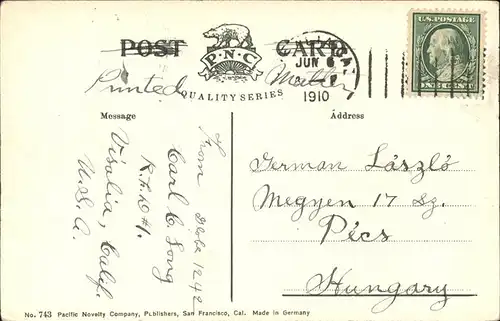 POST CARD
P·N·C
QUALITY SERIES
Printed Matter
JUN 6
1910
U.S. POSTAGE
ONE CENT
Message
Address
From Globe 1242
Carl C. Long
R.F.D #1.
Visalia, Calif.
U.S.A.
German László
Megyen 17 Sz.
Pécs
Hungary
No. 743 Pacific Novelty Company, Publishers, San Francisco, Cal. Made in Germany